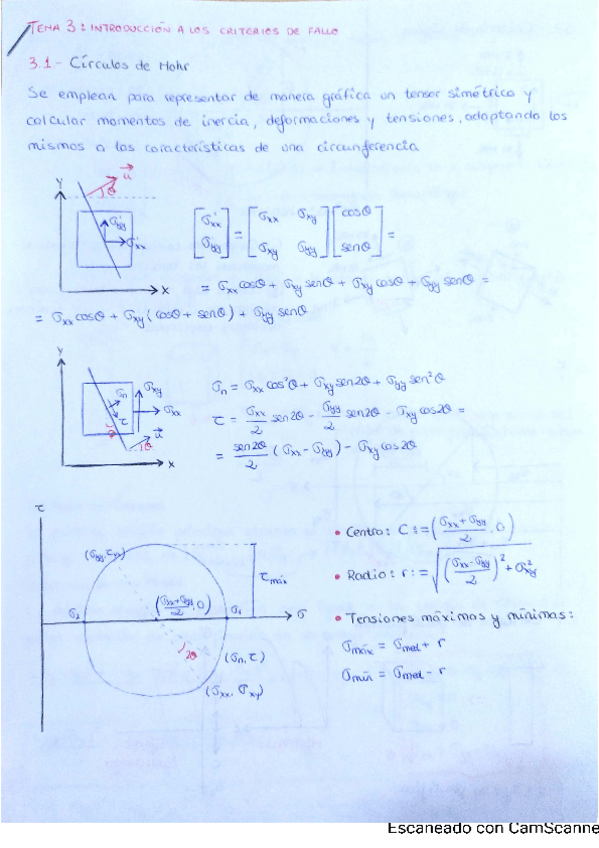 TEMA 3: INTRODUCCIÓN A LOS CRITERIOS DE FALLO
3.1- Círculos de Mohr
Se emplean para representar de manera gráfica un tensor simétrico y
calcular momentos de inercia, deformaciones y tensiones, adaptando los
mismos a las características de una circunferencia
Y
u
θ
σ'yy
σ'xx
X
[σ'xx σ'yy] = [σxx σxy σxy σyy] [cosθ senθ] =
= σxx cosθ + σxy senθ + σxy cosθ + σyy senθ =
= σxx cosθ + σxy (cosθ + senθ) + σyy senθ
Y
σn
τ
σxy
σxx
θ
u
θ
X
σn = σxx cos²θ + σxy sen2θ + σyy sen²θ
τ = σxx/2 sen2θ - σyy/2 sen2θ - σxy cos2θ =
= sen2θ/2 (σxx - σyy) - σxy cos2θ
τ
(σyy, τxy)
τmáx
(σxx+σyy/2, 0)
σ2
σ1
σ
2θ
(σn, τ)
(σxx, σxy)
• Centro: C := (σxx + σyy/2, 0)
• Radio: r := √(σxx - σyy/2)² + σ²xy
• Tensiones máximas y mínimas:
σmáx = σmed + r
σmín = σmed - r
Escaneado con CamScanne